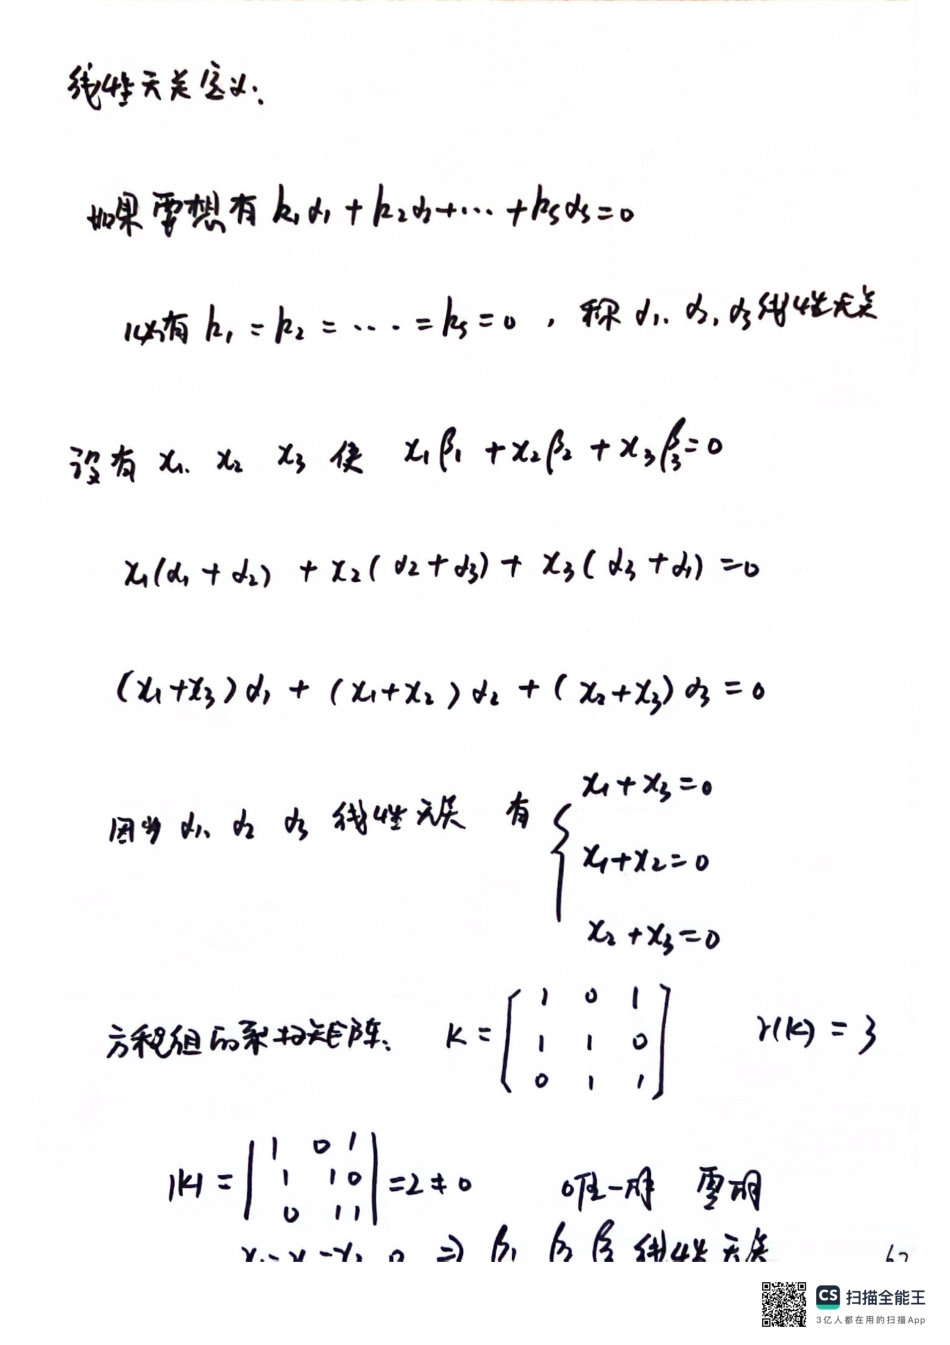 线性无关定义:
如果要想有 k₁α₁ + k₂α₂ + ⋯ + ksαs = 0
必有 k₁ = k₂ = ⋯ = ks = 0 , 称 α₁、α₂, α₃ 线性无关
设有 x₁、x₂ x₃ 使 x₁β₁ + x₂β₂ + x₃β₃ = 0
x₁(α₁ + α₂) + x₂(α₂ + α₃) + x₃(α₃ + α₁) = 0
(x₁+x₃)α₁ + (x₁+x₂)α₂ + (x₂+x₃)α₃ = 0
x₁ + x₃ = 0
因为 α₁、α₂ α₃ 线性无关 有 { x₁+x₂ = 0
x₂ + x₃ = 0
方程组的系数矩阵、 K = [1 0 1
1 1 0
0 1 1] r(K) = 3
|K| = |1 0 1
1 1 0
0 1 1| = 2 ≠ 0 唯一解 零解
⇒ β₁ β₂ β₃ 线性无关
CS 扫描全能王
3亿人都在用的扫描App